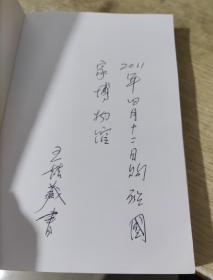 2011年四月十二日购於国
家博物馆
王培藏书